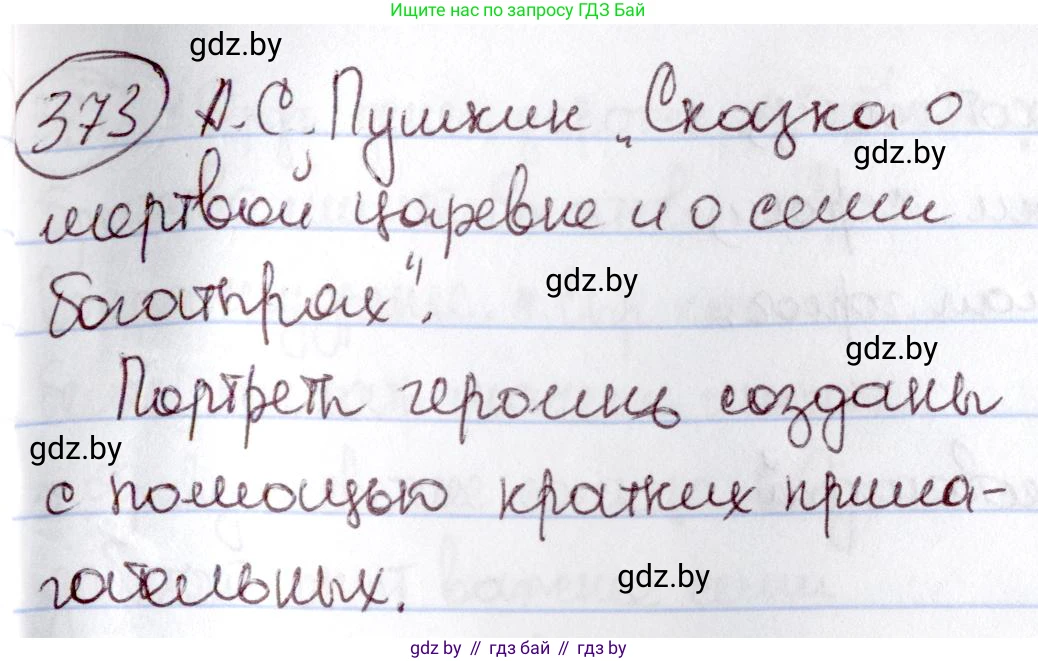 Ищите нас по запросу ГДЗ Бай
gdz.by
373 А.С. Пушкин „Сказка о
gdz.by
мертвой царевне и о семи
gdz.by
богатырях".
gdz.by
Портреты героинь созданы
gdz.by
с помощью кратких прила-
gdz.by
гательных.
gdz.by // гдз бай // гдз by